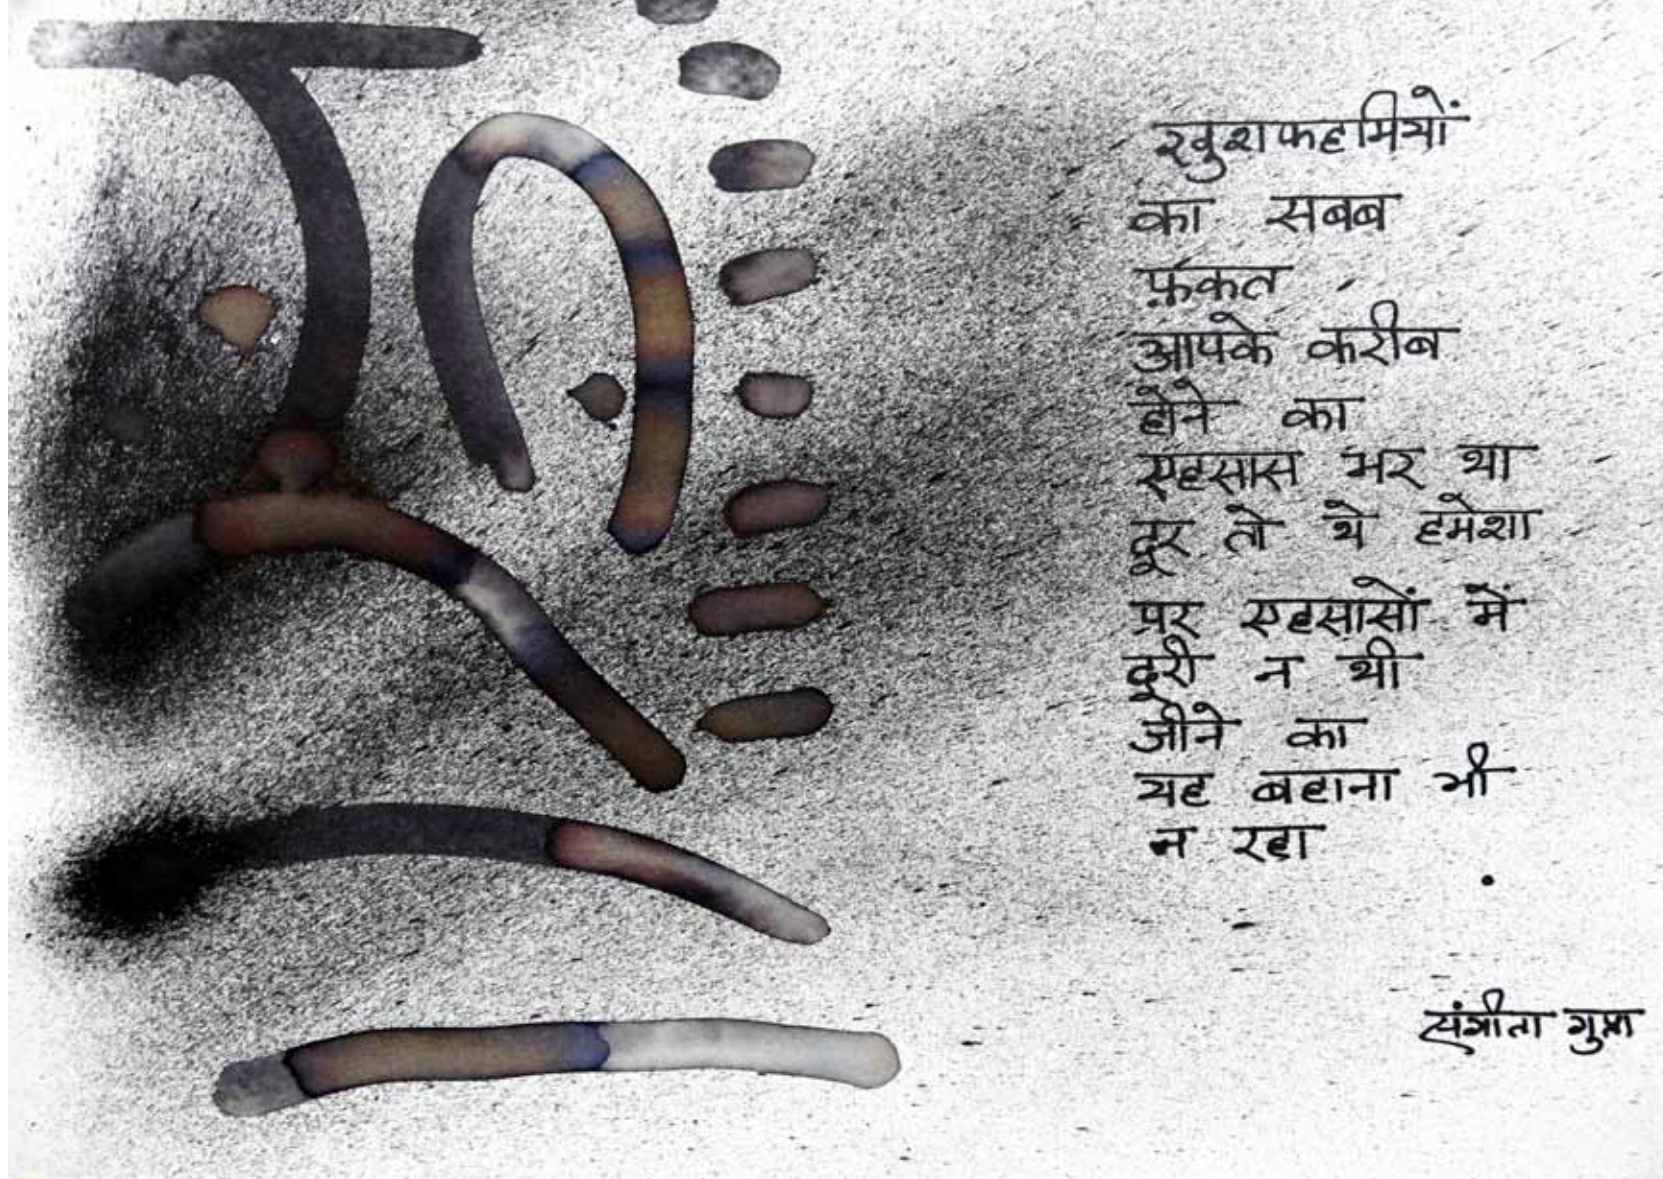 खुशफहमियों
का सबब
फ़कत
आपके करीब
होने का
एहसास भर था
दूर तो थे हमेशा
पर एहसासों में
दूरी न थी
जीने का
यह बहाना भी
न रहा
संगीता गुप्ता